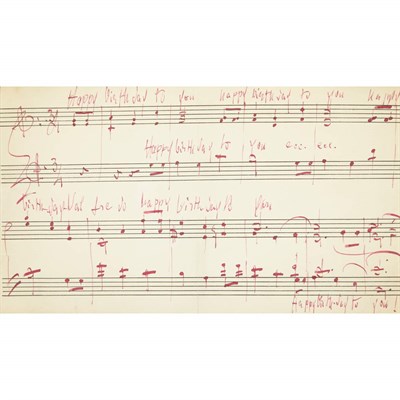 Happy birthday to you happy birthday to you happy
Happy birthday to you ecc. ecc.
happy birthday to you
Happy birthday to you!